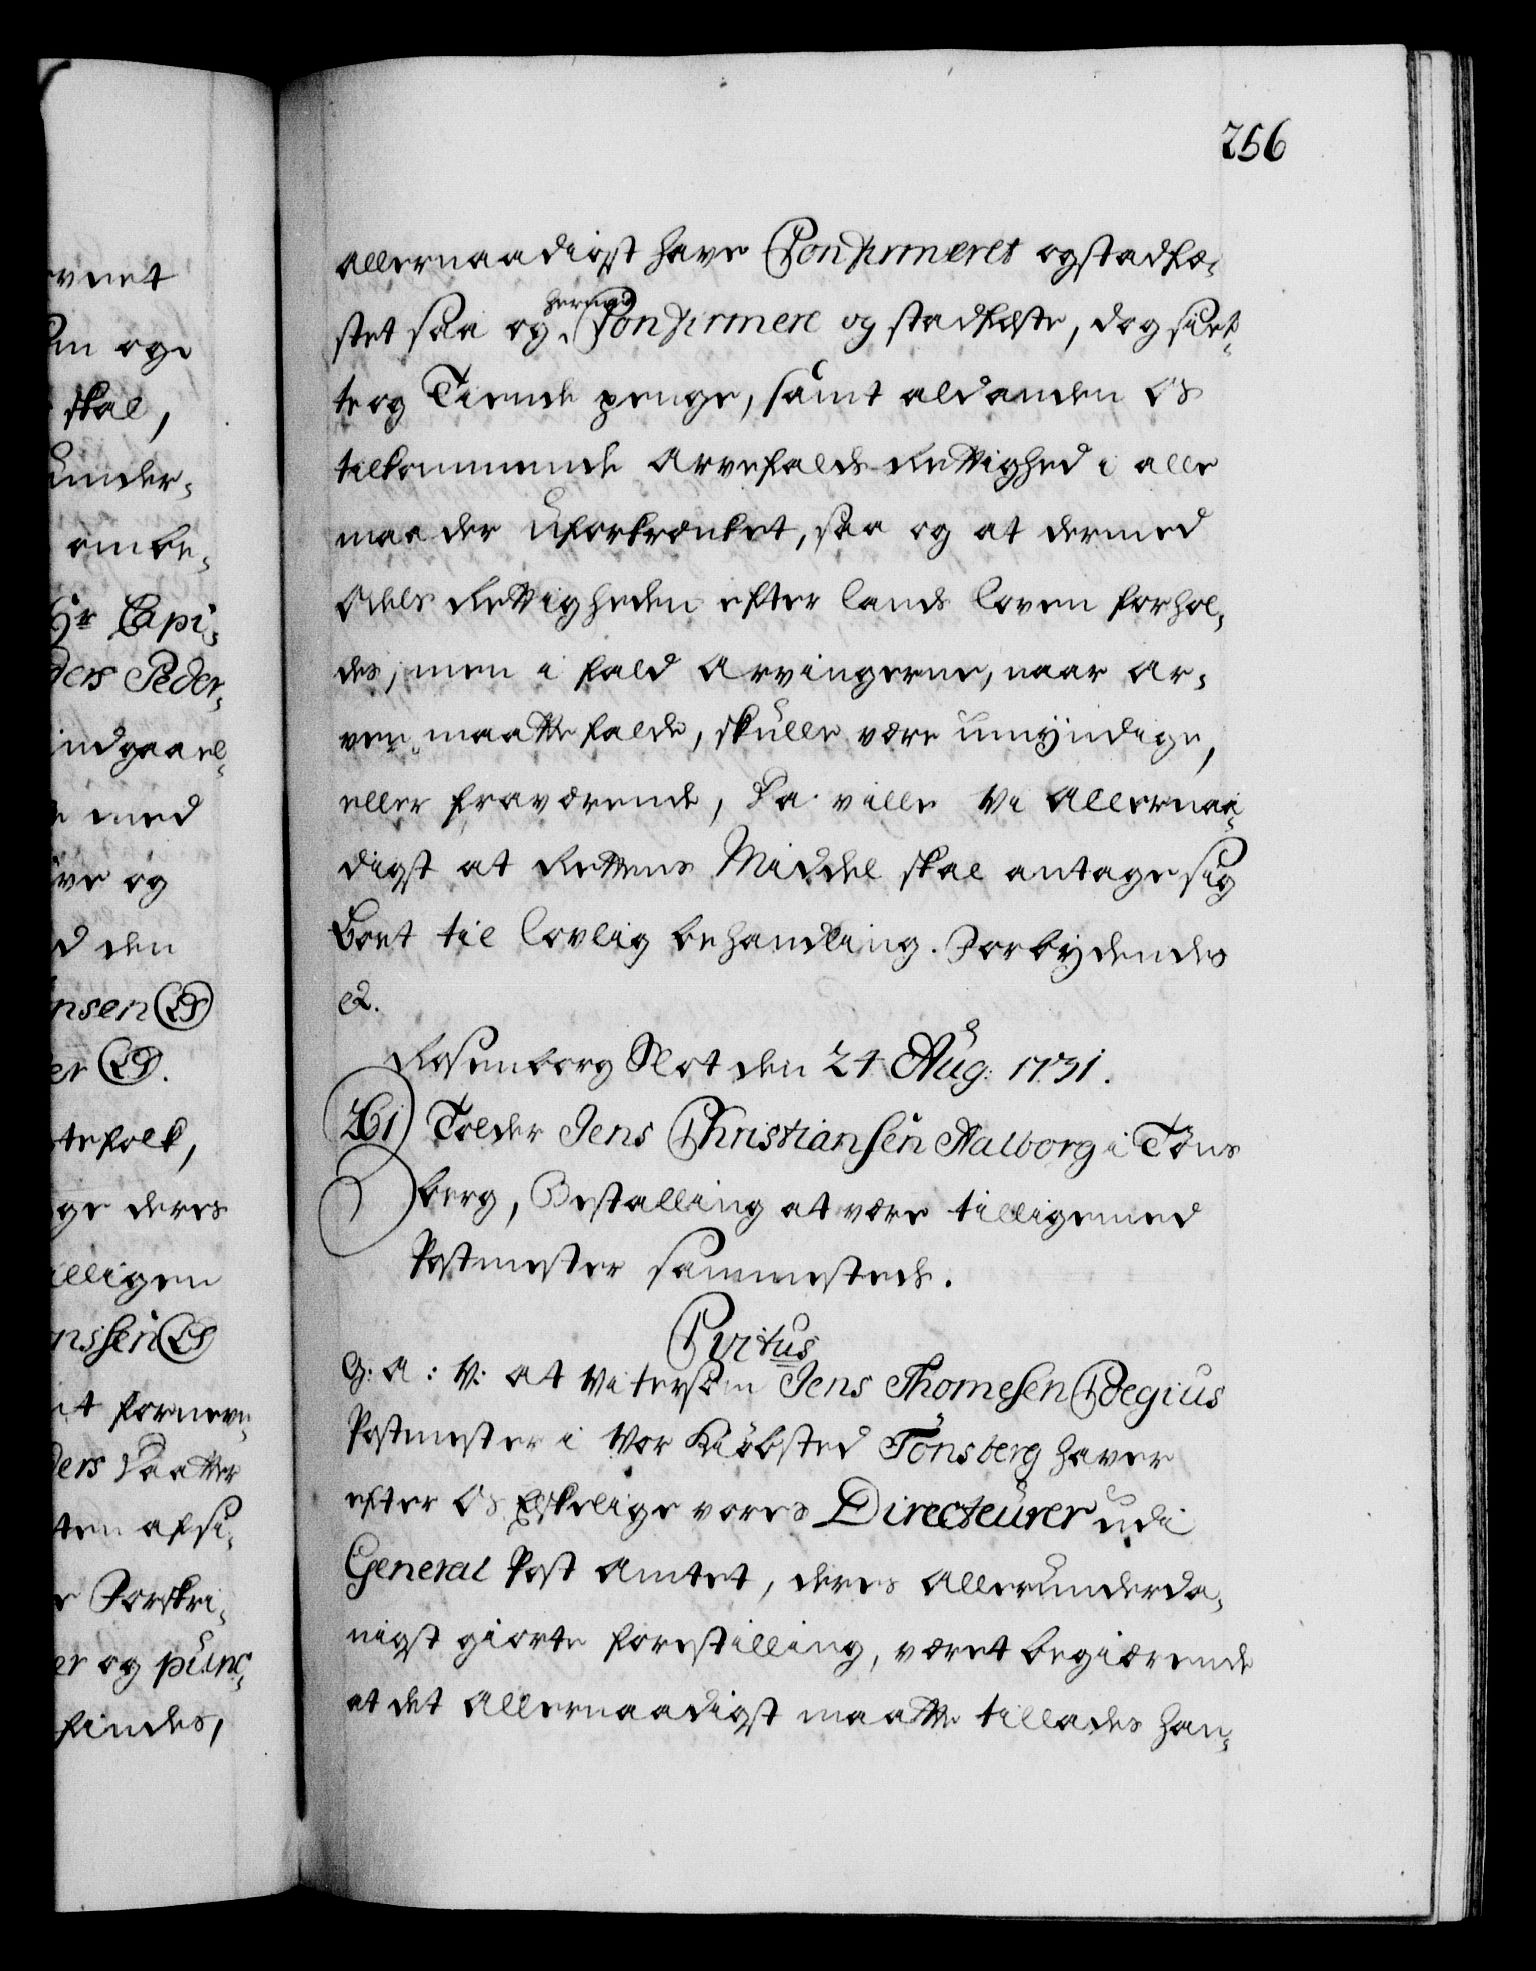 256
allernaadigst have Confirmeret og stadfæ-
stet saa og hermed Confirmere og stadfæste, dog siet-
te og Tiende penge, samt ald anden Os
tilkommende Arvefalds Rettighed i alle
maader uforkrænket, saa og at dermed
Odels Rettigheden efter lands loven forhol-
des, men i fald Arvingerne, naar Ar-
ven maatte falde, skulle være umÿndige,
eller fraværende, da ville Vi Allernaa-
digst at Rettens Middel skal antage sig
Boet til lovlig behandling. Forbÿdendes
&.
Rosenborg Slot den 24 Aug: 1731.
261 Tolder Jens Christiansen Aalborg i Tøns
berg, Bestalling at være tilligemed
Postmester sammesteds.
Cvitus
G: A: V: at Vi eftersom Jens Thomesen Coegius
Postmester i Vor Kiøbsted Tønsberg haver
efter Os Elskelige vores Directeurer udi
General Post Amtet, deres Allerunderda-
nigst giorte forestilling, været begiærende
at det Allernaadigst maatte tillades han-
vnet
og
skal,
under-
ombe-
Hr Capi-
ders Peder-
indgaael-
med
og
den
nsen
er
tefolk,
ge deres
illigen
nssen
nt fornevn-
ders Daatter
ten afsi-
Forskri-
er og punc-
findes,